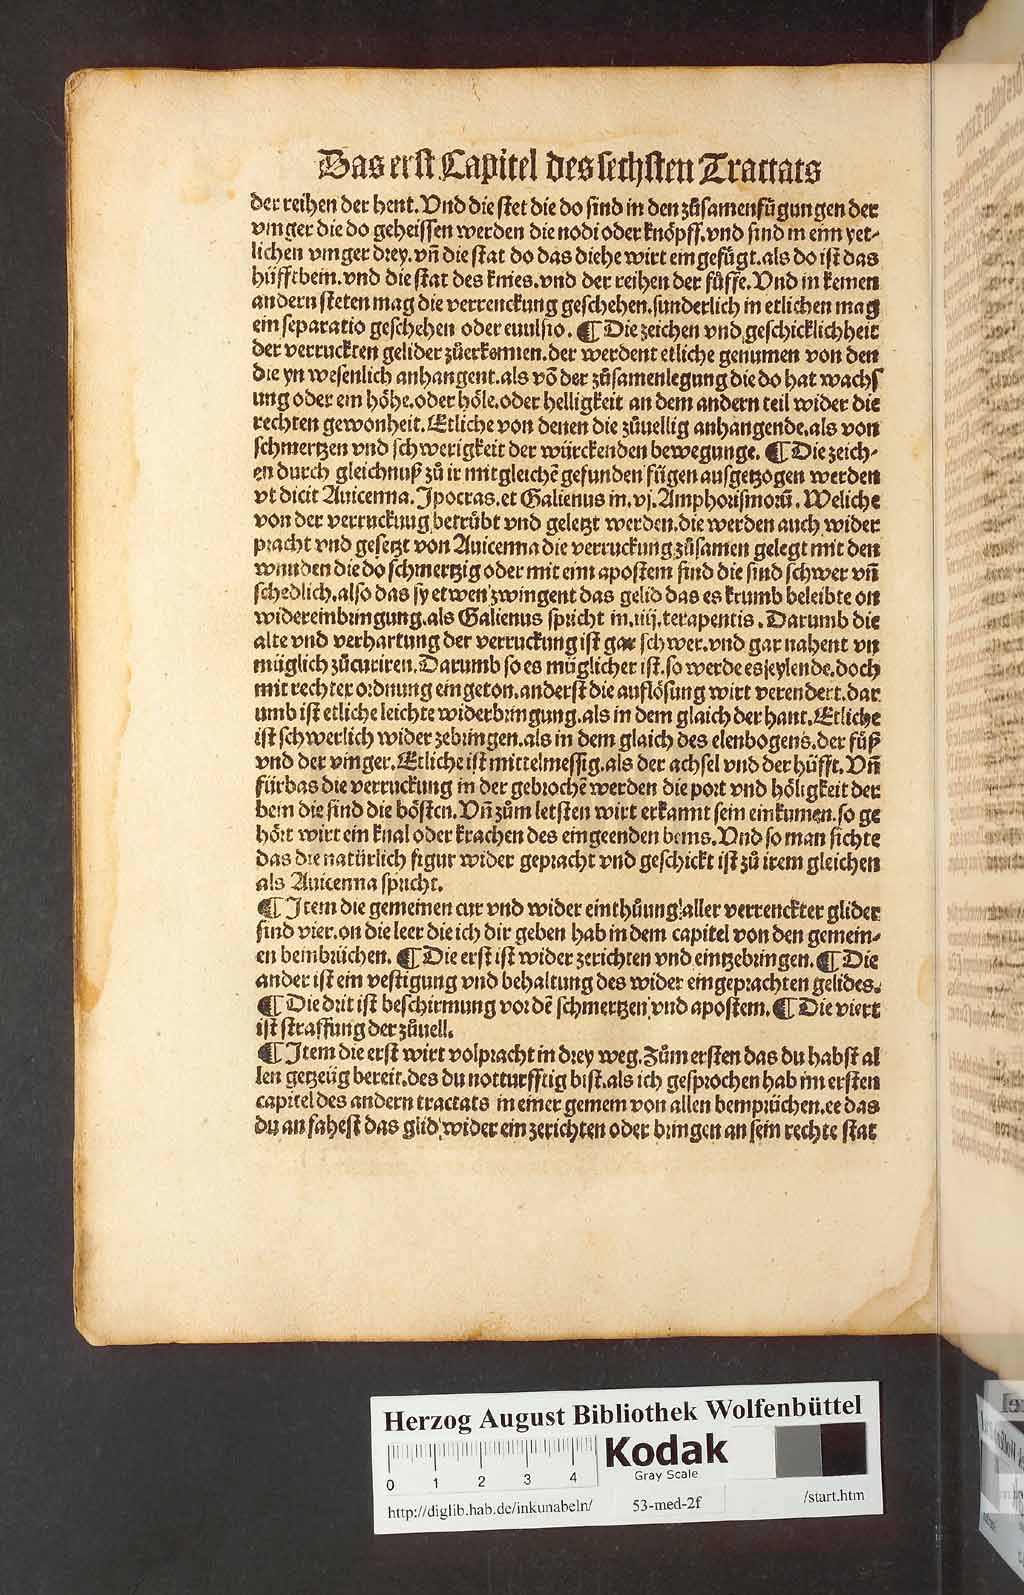 Das erst Capitel des sechsten Tractats
der reihen der hent. Vnd die stet die do sind in den zůsamenfügungen der
vinger die do geheissen werden die nodi oder knöpff. vnd sind in eim yet-
lichen vinger drey. vñ die stat do das diehe wirt eingefügt. als do ist das
hüfftbein. vnd die stat des knies. vnd der reihen der füsse. Vnd in keinen
andern steten mag die verrenckung geschehen. sunderlich in etlichen mag
ein separatio geschehen oder euulsio. ¶ Die zeichen vnd geschicklichheit
der verruckten gelider zůerkennen. der werdent etliche genumen von den
die yn wesenlich anhangent. als võ der zůsamenlegung die do hat wachs
ung oder ein höhe. oder höle. oder helligkeit an dem andern teil wider die
rechten gewonheit. Etliche von denen die zůuellig anhangende. als von
schmertzen vnd schwerigkeit der würckenden bewegunge. ¶ Die zeich-
en durch gleichnuß zů ir mitgleichẽ gefunden fügen ausgetzogen werden
vt dicit Auicenna. Jpocras. et Galienus in. vj. Amphorismorũ. Weliche
von der verruckung betrübt vnd geletzt werden. die werden auch wider
pracht vnd gesetzt von Auicenna die verruckung zůsamen gelegt mit den
wunden die do schmertzig oder mit eim apostem sind die sind schwer vñ
schedlich. also das sy etwen zwingent das gelid das es krumb beleibte on
widereinbringung. als Galienus spricht in. iiij. terapentis. Darumb die
alte vnd verhartung der verruckung ist gar schwer. vnd gar nahent vn
müglich zůcuriren. Darumb so es müglicher ist. so werde es jeylende. doch
mit rechter ordnung eingeton. anderst die auflösung wirt verendert. dar
umb ist etliche leichte widerbringung. als in dem glaich der hant. Etliche
ist schwerlich wider zebringen. als in dem glaich des elenbogens. der füß
vnd der vinger. Etliche ist mittelmessig. als der achsel vnd der hüfft. Vñ
fürbas die verruckung in der gebrochẽ werden die port vnd höligkeit der
bein die sind die bösten. Vñ zům letsten wirt erkannt sein einkumen. so ge
hört wirt ein knal oder krachen des eingeenden beins. Vnd so man sichte
das die natürlich figur wider gepracht vnd geschickt ist zů irem gleichen
als Auicenna spricht.
¶ Jtem die gemeinen cur vnd wider einthůung aller verrenckter glider
sind vier. on die leer die ich dir geben hab in dem capitel von den gemein-
en beinbrüchen. ¶ Die erst ist wider zerichten vnd eintzebringen. ¶ Die
ander ist ein vestigung vnd behaltung des wider eingeprachten gelides.
¶ Die drit ist beschirmung vor dẽ schmertzen vnd apostem. ¶ Die viert
ist straffung der zůuell.
¶ Jtem die erst wirt volpracht in drey weg. Zům ersten das du habst al
len getzeüg bereit. des du notturfftig bist. als ich gesprochen hab im ersten
capitel des andern tractats in einer gemein von allen beinprüchen. ee das
du anfahest das glid wider ein zerichten oder bringen an sein rechte stat
Herzog August Bibliothek Wolfenbüttel
0 1 2 3 4
Kodak
Gray Scale
http://diglib.hab.de/inkunabeln/ 53-med-2f /start.htm